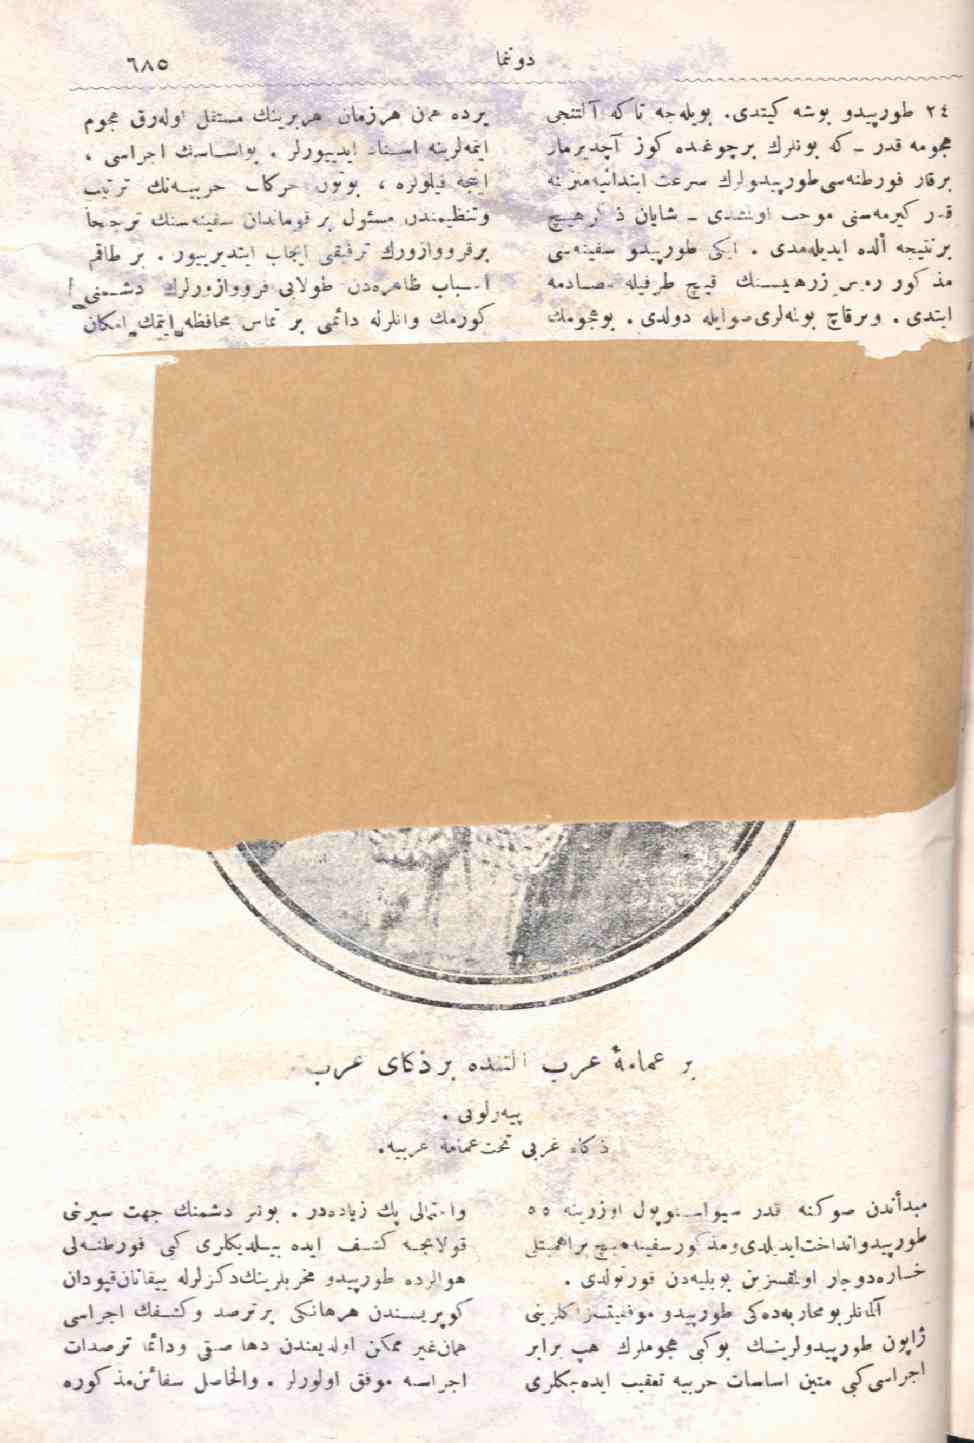 دوننما
٦٨٥
٢٤ طورپيدو بوشه كيتدى. بويله‌جه تاكه آلتنجى
هجومه قدر ـ كه بونلرك برچوغنده كوز آچديرمار
برقار فورطنه‌سى طورپيدولرك سرعت ابتدائيه
قدر كيرمه‌سنى موجب اولمشدى ـ شايان ذكر هيچ
برنتيجه ألده ايديله‌مدى . ايكى طورپيدو سفينه‌سى
مذكور روس زرهيسنك قيچ طرفيله مصادمه
ايتدى . وبرقاچ بولمه‌لرى صوايله دولدى . بوهجومك
يرده همن هرزمان هربرينك مستقل اوله‌رق هجوم
ايتمه‌لرينه اسناد ايدييورلر . بواساسك اجراسى ،
ايتجه فيلولره ، بوتون حركات حربيه‌نك ترتيب
وتنظيمندن مسئول بر قوماندان سفينه‌سنك ترجيحاً
برقرووازورك ترفيقى ايجاب ايتديرييور . بر طاقم
اسباب ظاهره‌دن طولايى قرووازورلرك دشمنى
كورمك وانلرله دائمى بر تماس محافظه ايتمك امكان
بر عمامۀ عرب آلتنده بر ذكاى عرب
پيه‌رلوتى .
ذكاء غربى تحت عمامة عربيه.
مبدأندن صوكنه قدر سيواستوپول اوزرينه ٥٥
طورپيدو انداخت ايديلدى ومذكور سفينه هيچ براهميتلى
خساره دوچار اولقسزين بوبليه‌دن قورتولدى .
آلمانلر بومحاربه‌ده‌كى طورپيدو موفقيتسزلكلرينى
ژاپون طورپيدولرينك بوكبى هجوملرك هپ برابر
اجراسى كبى متين اساسات حربيه تعقيب ايده‌جكلرى
واحتمالى پك زياده‌در . بونلر دشمنك جهت سيرنى
قولايجه كشف ايده بيلديكلرى كبى فورطنه‌لى
هوالرده طورپيدو مخربلرينك دكزلرله ييقانان قپودان
كوپريسندن هرهانكى برترصد وكشفك اجراسى
همان غير ممكن اولديغندن دها صيقى ودائما ترصدات
اجراسنه موفق اولورلر . والحاصل سفائن مذكوره